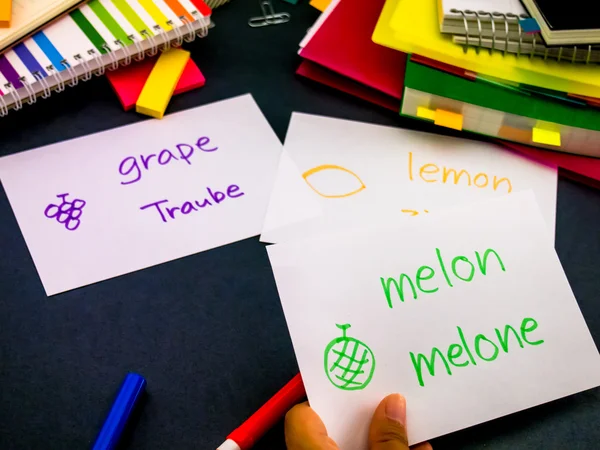 grape
Traube
lemon
melon
melone